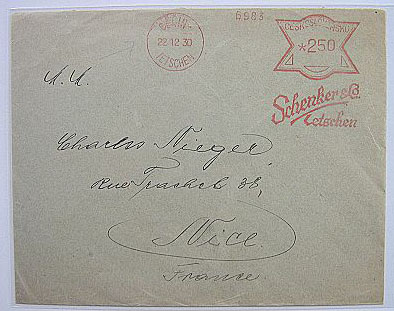 6983
DĚČÍN-
22.12.30
TETSCHEN
ČESKOSLOVENSKO
*250
Schenker & Co.
Tetschen
Charles Nieger,
Rue Trachel 38,
Nice.
France.